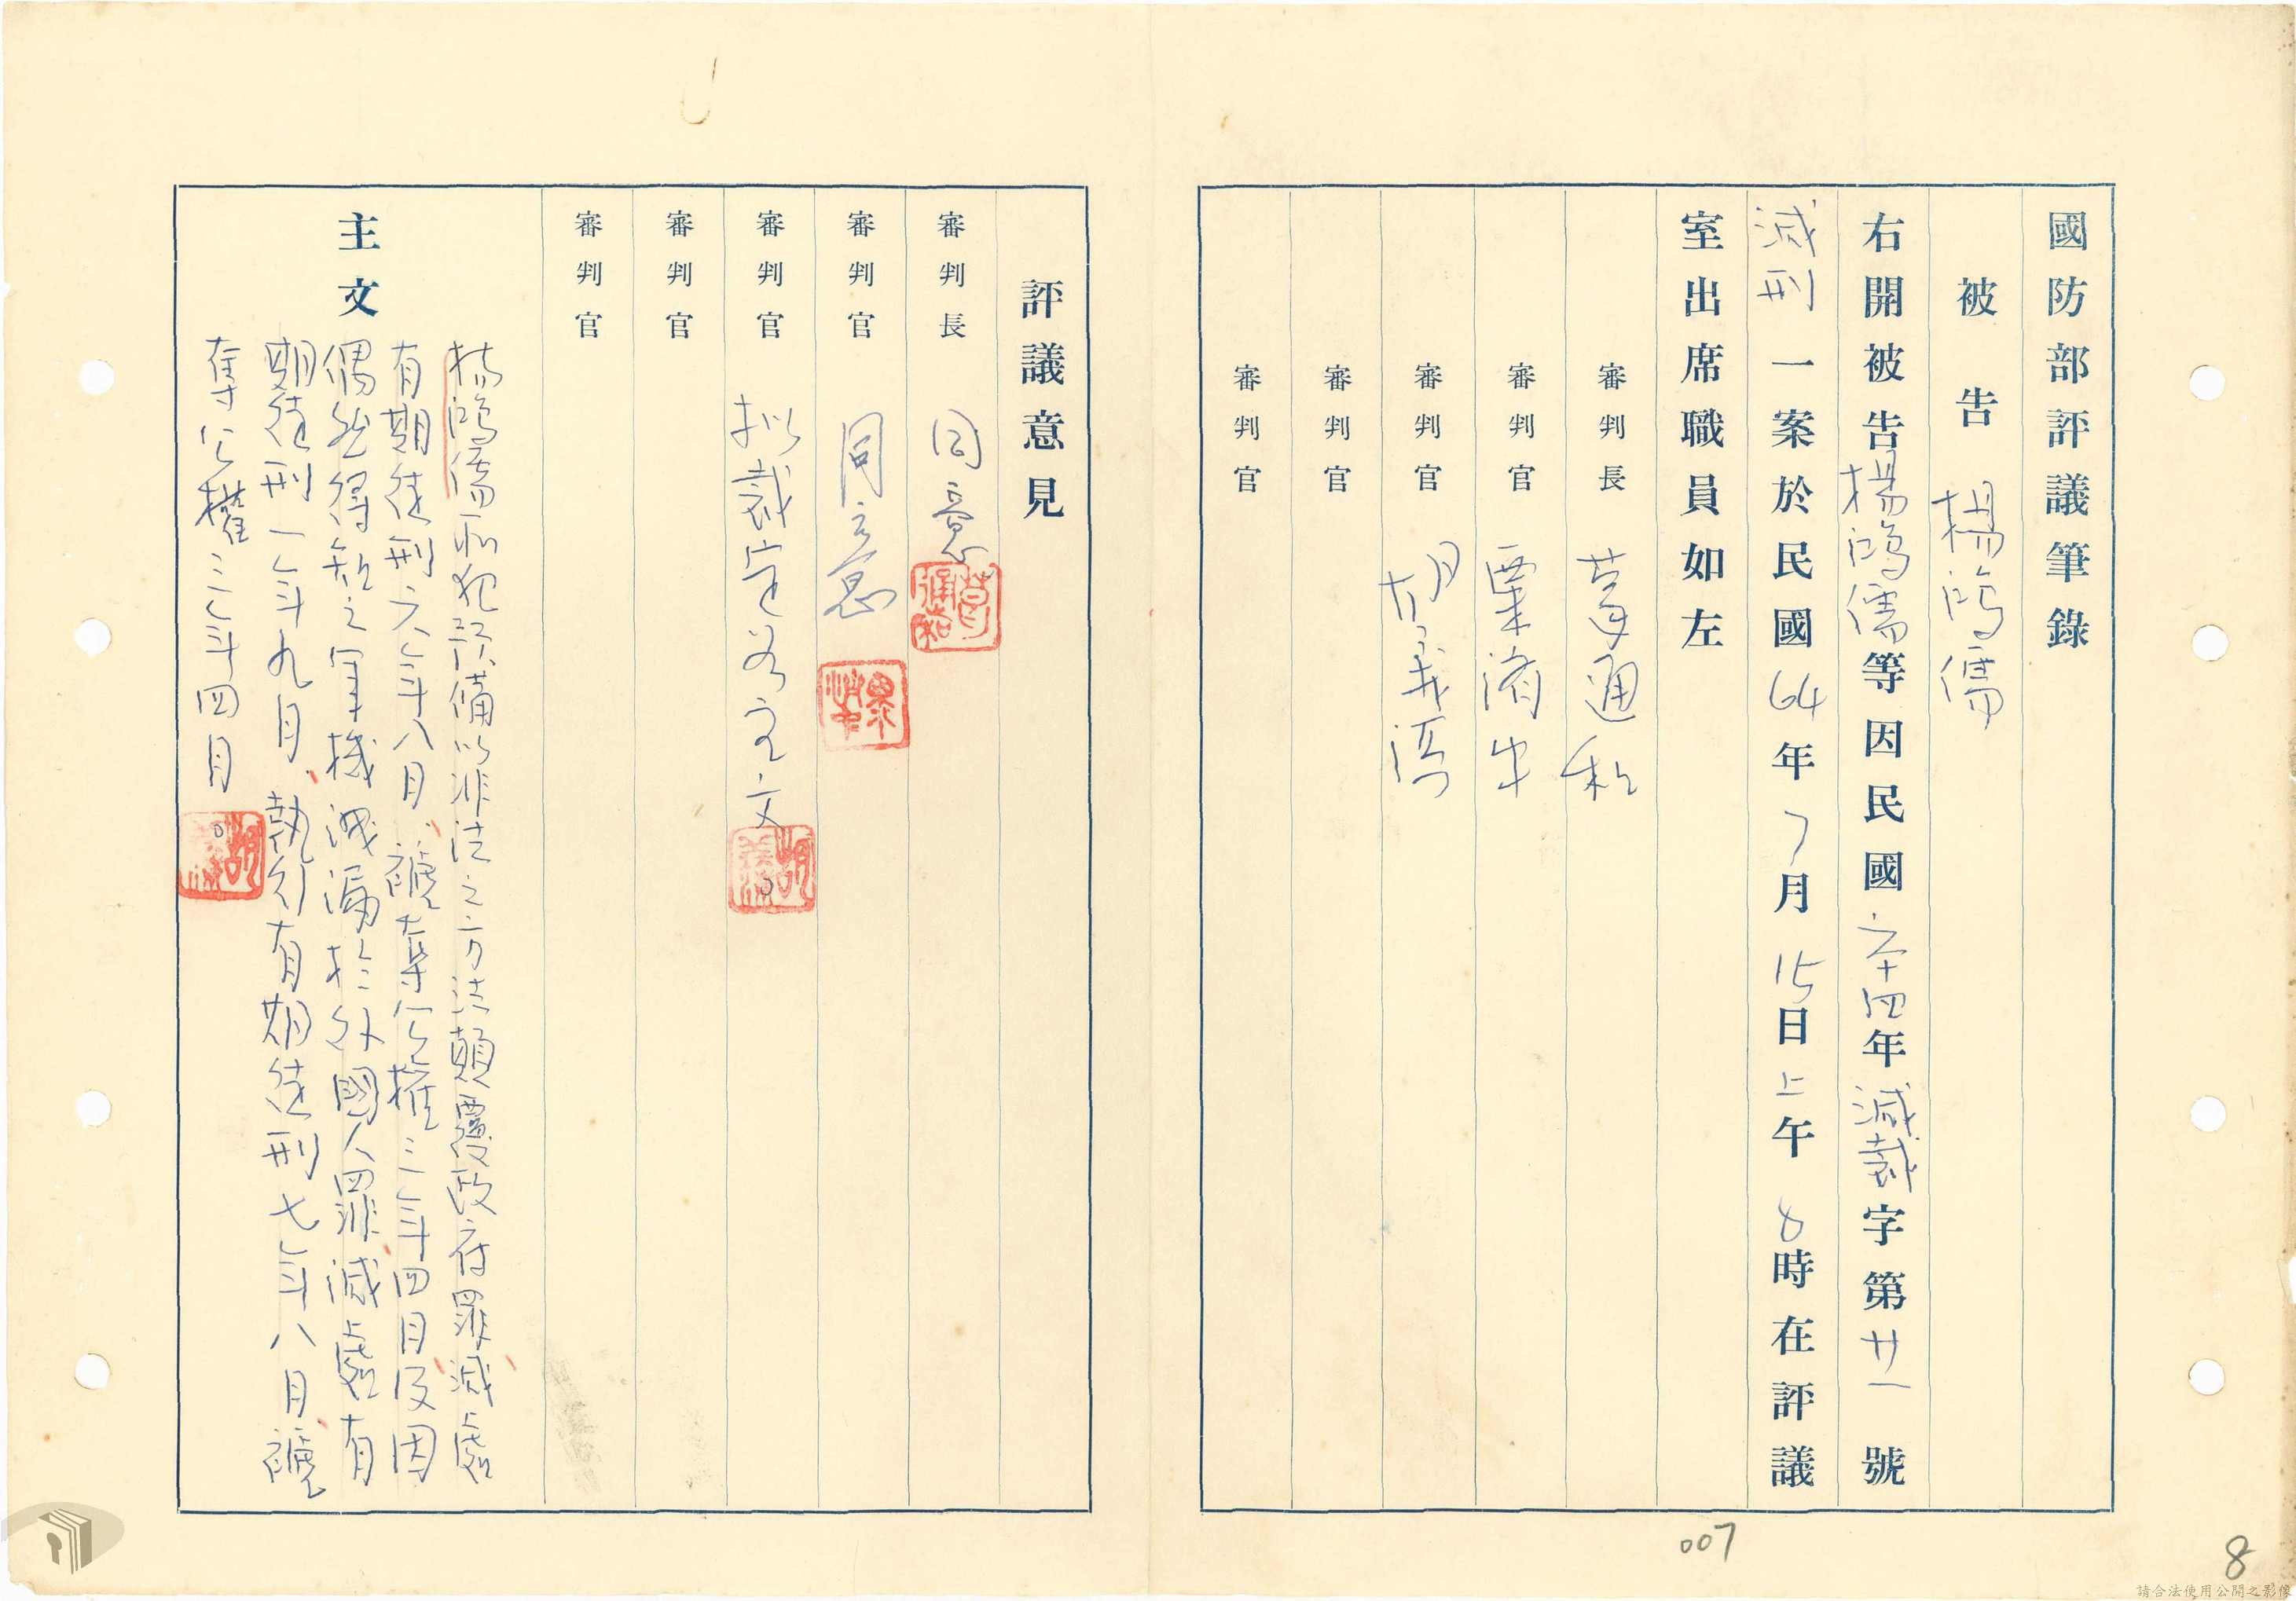 國防部評議筆錄
被告 楊鴻儒
右開被告楊鴻儒等因民國六十四年減裁字第廿一號
減刑一案於民國64年7月15日上午8時在評議
室出席職員如左
審判長 葛通和
審判官 粟濟中
審判官 胡義濤
審判官
審判官
評議意見
審判長 同意
審判官 同意
審判官 擬裁定如主文
審判官
審判官
主文
楊鴻儒所犯預備以非法之方法顛覆政府罪減處
有期徒刑六年八月,褫奪公權三年四月及因
偶然得知之軍機洩漏於外國人罪減處有
期徒刑一年九月,執行有期徒刑七年八月褫
奪公權三年四月
007
8
請合法使用公開之影像